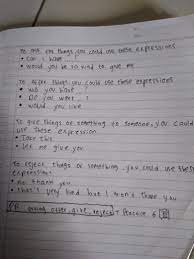 To ask for things you could use these expressions
• Can I have ...?
• Would you be so kind to give me
To offer things you could use these expressions
• Will you have
• Do you want ...?
• Would you like
To give things or something to someone, you could
use these expression
• Take this
• Let me give you
To reject things or something you could use these
expression:
• No thank you
• That's very kind but I won't thank you
offer, give, reject Practice 6 B